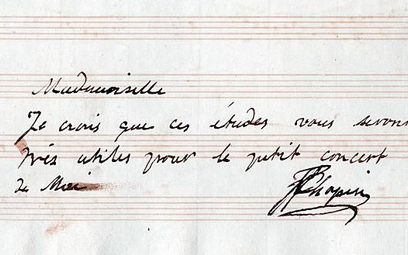 Mademoiselle
Je crois que ces études vous serons
très utiles pour le petit concert
de Mai
FChopin